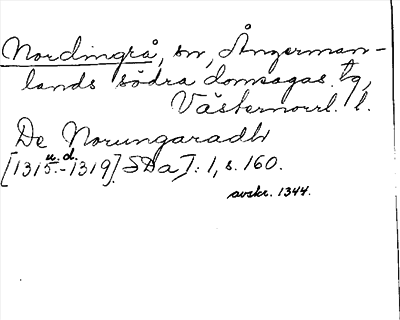 Nordingrå, sn, Ångerman-
lands södra domsagas tg,
Västernorrl. l.
De Norungaradh
u. d.
[1315.-1319] SDa I: 1, s. 160.
avskr. 1344.